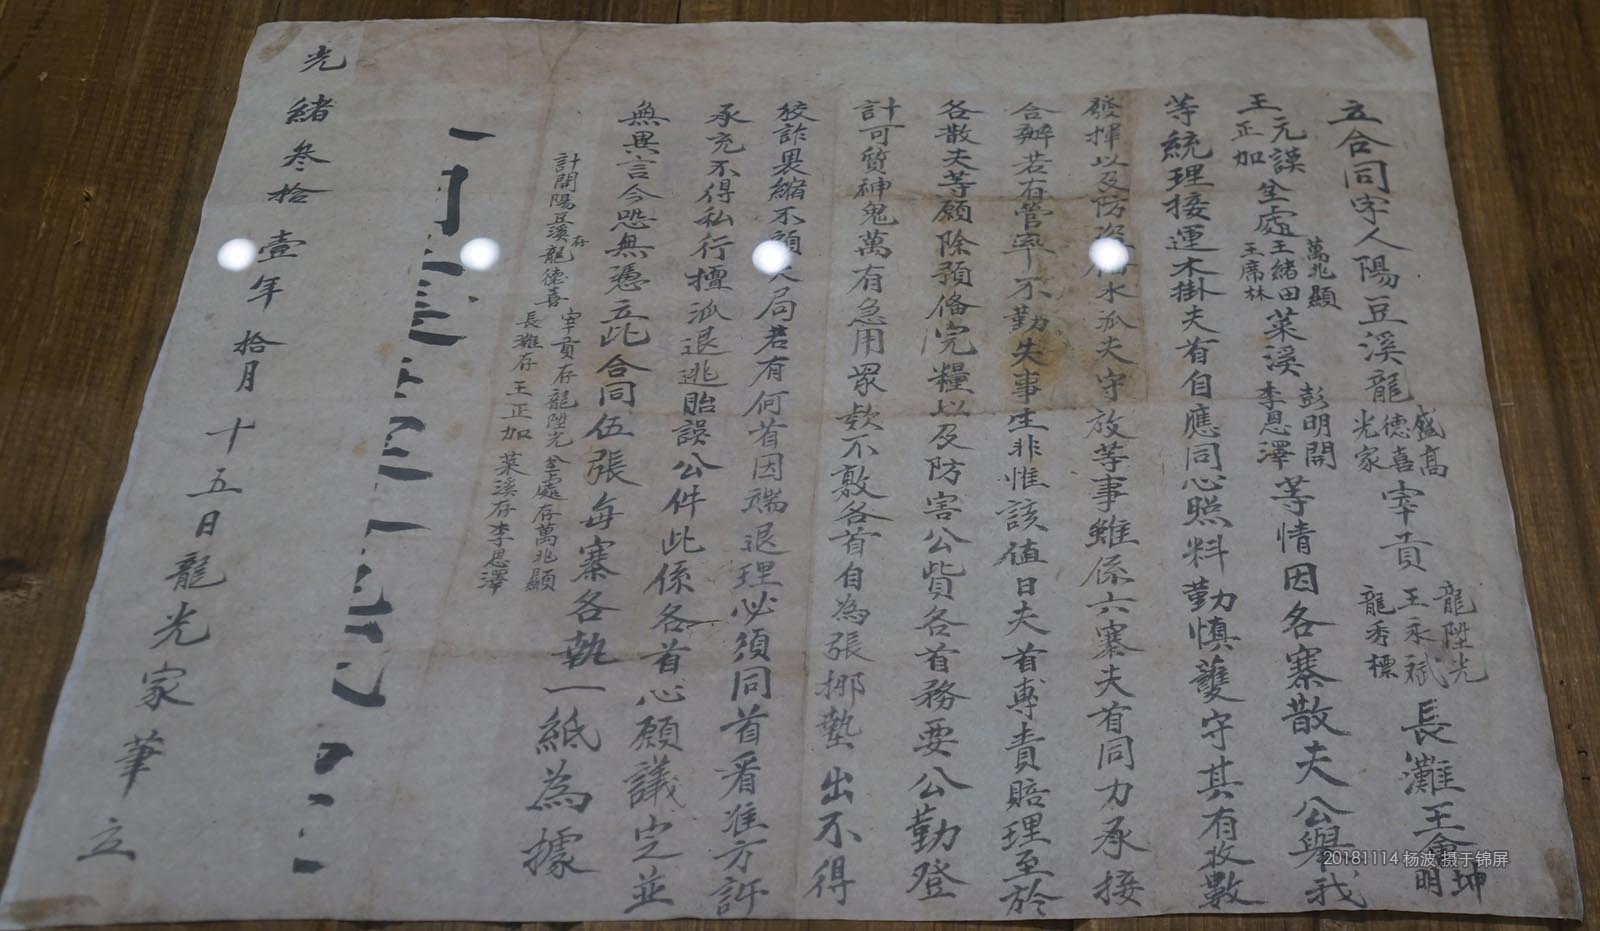 立合同字人陽豆溪龍盛高德喜光家宰貢龍陞光王永斌龍秀標長灘王金坤明
王元謨正加㘴處萬兆顯王緒田王席林菜溪彭明開李恩澤等情因各寨散夫公舉我
等統理接運木掛夫省自應同心照料勤慎護守其有收數
發揮以及防水派夫守放等事雖係六寨夫首同力承接
合辦若有管率不勤失事生非惟該值日夫首專責賠理至於
各散夫等願除預備完糧以及防害公貲各首務要公勤登
計可質神鬼萬有急用眾欵不敷各首自為張挪墊出不得
狡詐畏縮不顧大局若有何首因端退理必須同首看准方許
承充不得私行擅派退逃貽誤公件此係各首心願議定並
無異言今恐無憑立此合同伍張每寨各執一紙為據
計開陽豆溪存龍德喜宰貢存龍陞光㘴處存萬兆顯
長灘存王正加菜溪存李恩澤
光緒叁拾壹年拾月十五日龍光家筆立
20181114 杨波 摄于锦屏